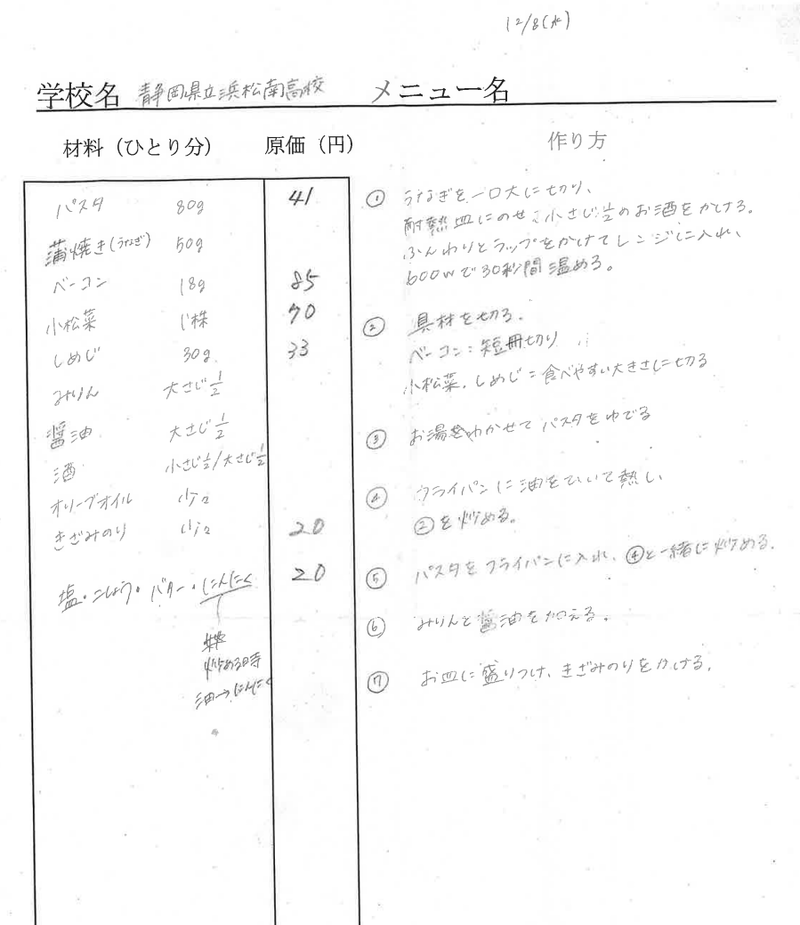 12/8(水)
学校名 静岡県立浜松南高校 メニュー名
材料（ひとり分） 原価（円） 作り方
パスタ 80g 41
蒲焼き(うなぎ) 50g
ベーコン 18g 85
小松菜 1株 70
しめじ 30g 33
みりん 大さじ1/2
醤油 大さじ1/2
酒 小さじ1/2/大さじ1/2
オリーブオイル 少々
きざみのり 少々 20
塩・こしょう・バター・にんにく 20
炒める時
油→にんにく
① うなぎを一口大に切り、
耐熱皿にのせ、小さじ1/2のお酒をかける。
ふんわりとラップをかけてレンジに入れ、
600Wで30秒間温める。
② 具材を切る。
ベーコン：短冊切り
小松菜、しめじ：食べやすい大きさに切る
③ お湯をわかせてパスタをゆでる
④ フライパンに油をひいて熱し
②を炒める。
⑤ パスタをフライパンに入れ、④と一緒に炒める。
⑥ みりんと醤油を加える。
⑦ お皿に盛りつけ、きざみのりをかける。